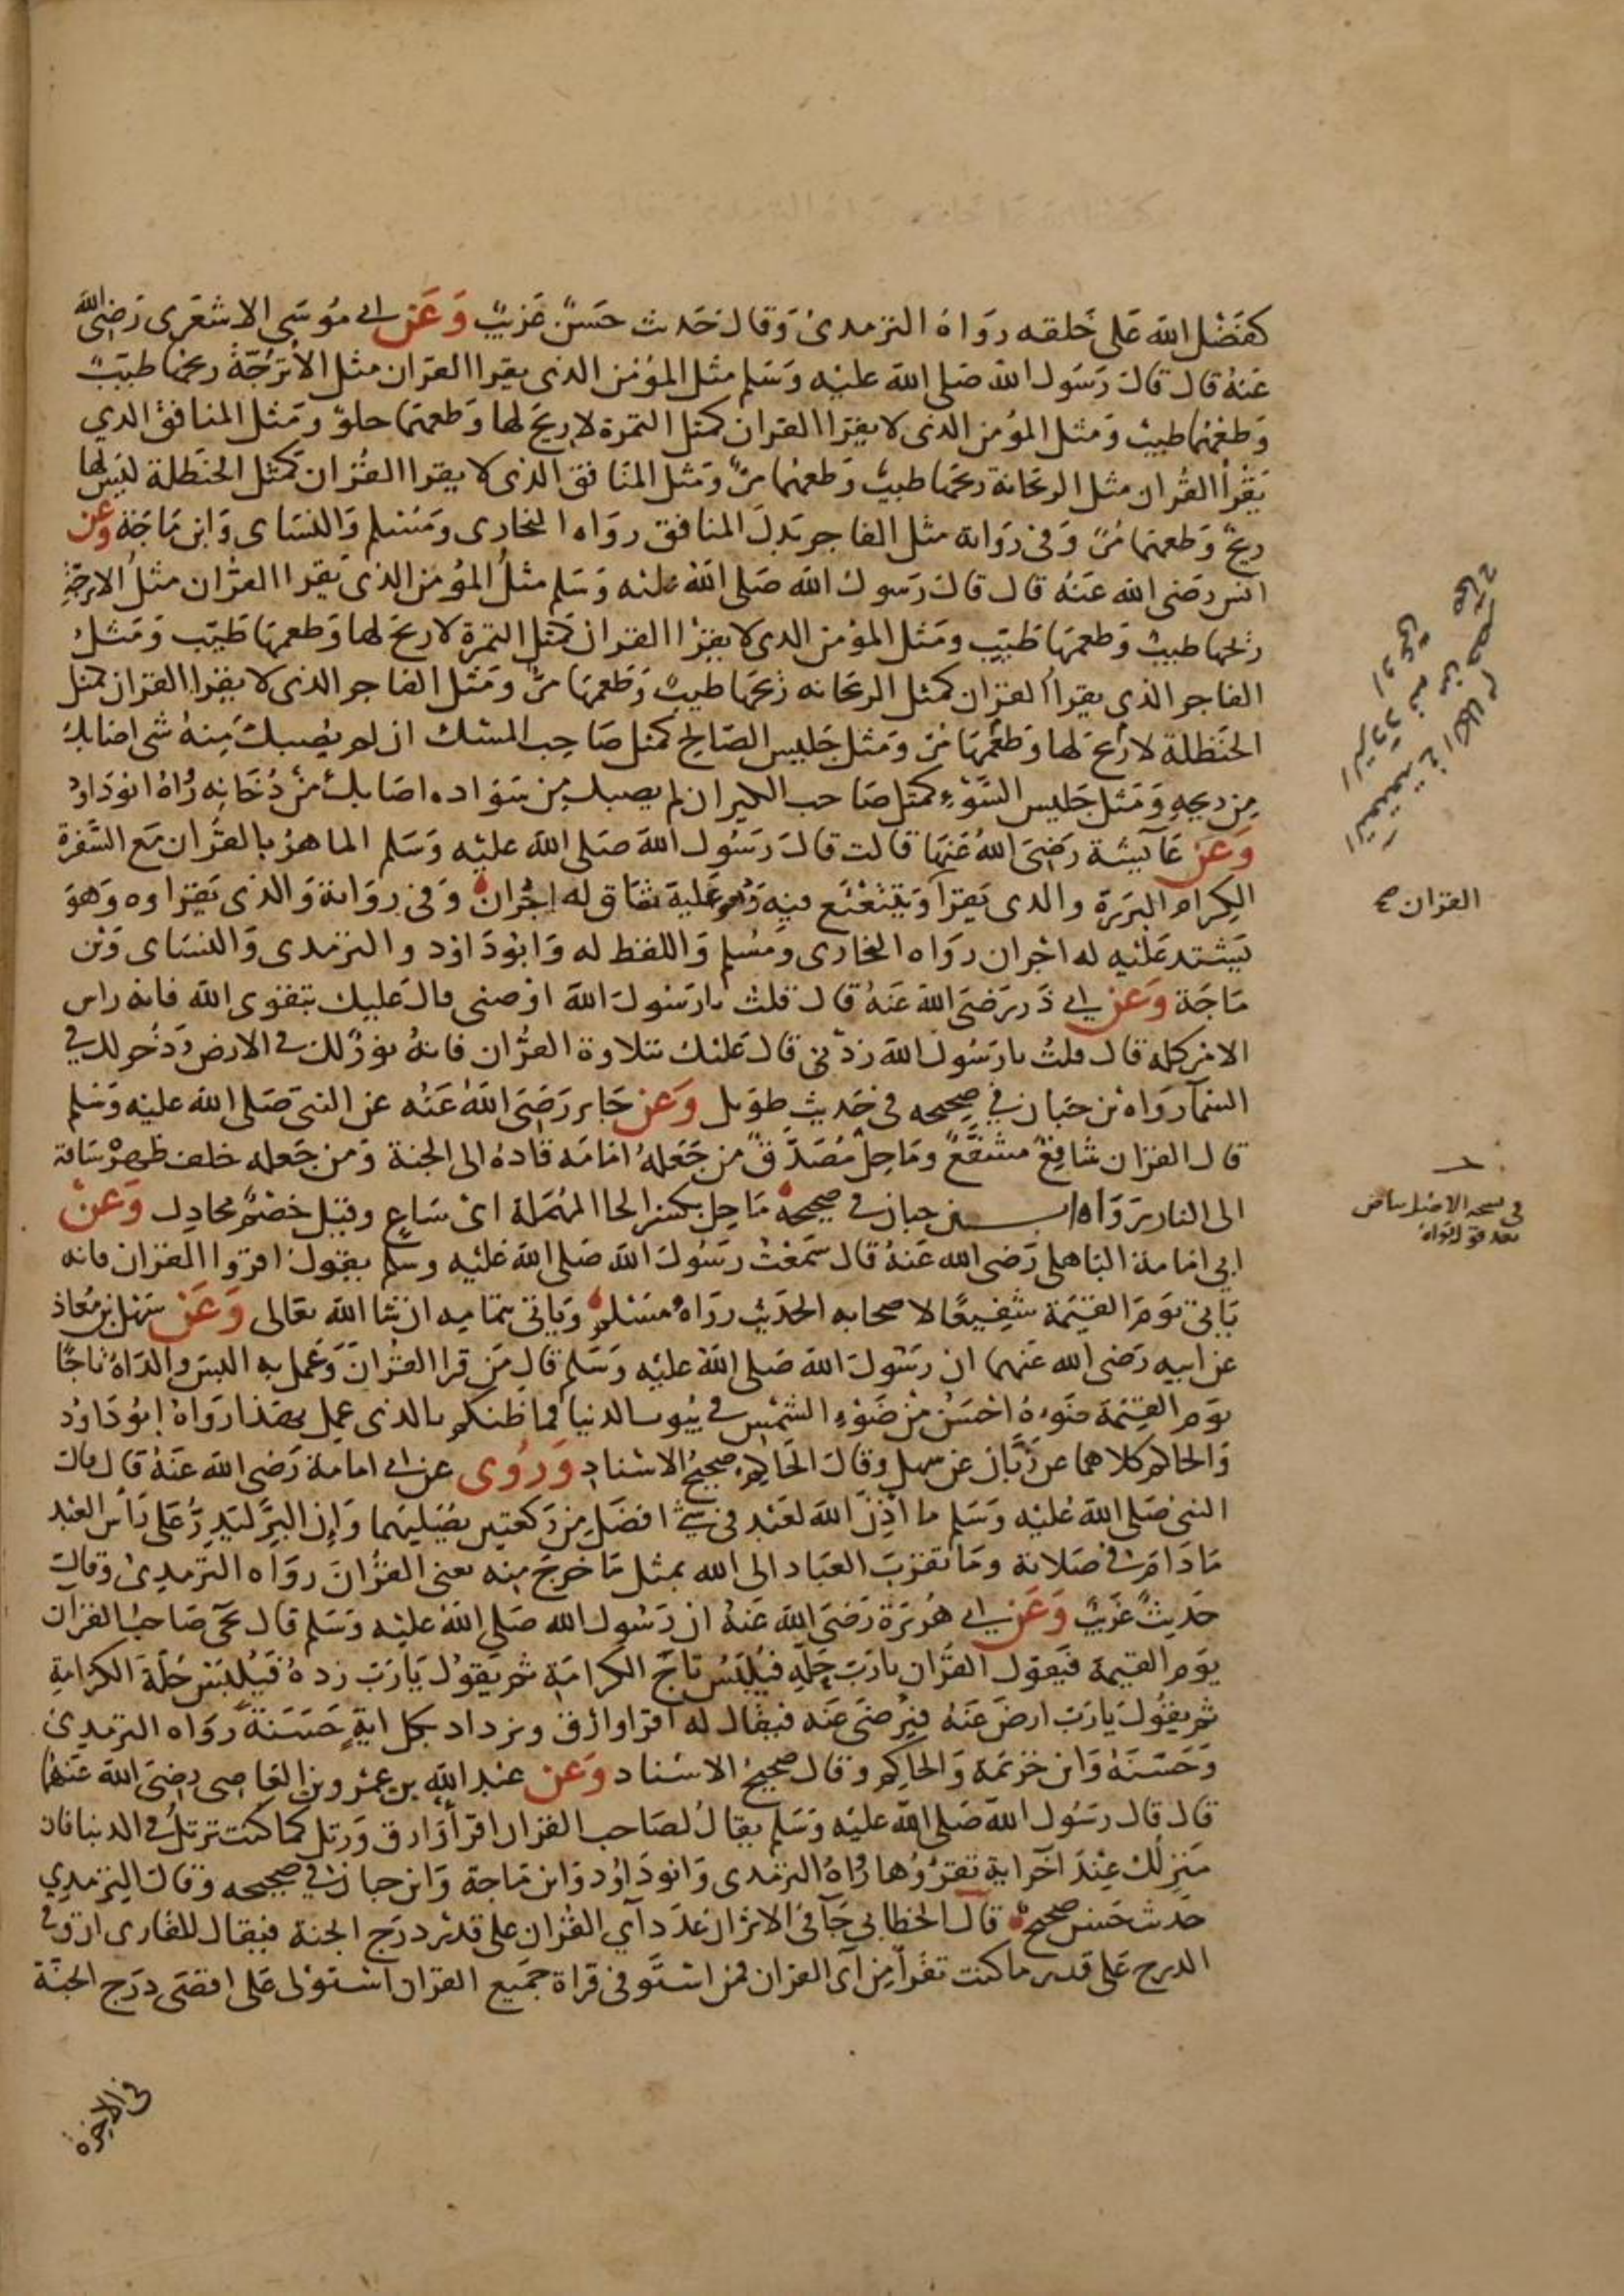 كفضل الله على خلقه رواه الترمذى وقال حديث حسن غريب وعن ابى موسى الاشعرى رضى الله
عنه قال قال رسول الله صلى الله عليه وسلم مثل المؤمن الذى يقرا القران مثل الأترجّة ريحها طيب
وطعمها طيب ومثل المؤمن الذى لا يقرا القران كمثل التمرة لا ريح لها وطعمها حلو ومثل المنافق الذي
يقرأ القران مثل الريحانة ريحها طيب وطعمها مرّ ومثل المنافق الذى لا يقرا القران كمثل الحنظلة ليس لها
ريح وطعمها مرّ وفى رواية مثل الفاجر بدل المنافق رواه البخارى ومسلم والنساى وابن ماجة وعن
انس رضى الله عنه قال قال رسول الله صلى الله عليه وسلم مثل المؤمن الذى يقرا القران مثل الاترجّة
ريحها طيب وطعمها طيّب ومثل المؤمن الذى لا يقرا القران كمثل التمرة لا ريح لها وطعمها طيّب ومثل
الفاجر الذى يقرأ القران كمثل الريحانه ريحها طيب وطعمها مرّ ومثل الفاجر الذى لا يقرا القران كمثل
الحنظلة لا ريح لها وطعمها مرّ ومثل جليس الصالح كمثل صاحب المسك ان لم يصبك منه شى اصابك
من ريحه ومثل جليس السّوء كمثل صاحب الكير ان لم يصبك من سواده اصابك من دخانه رواه ابو داود
وعن عآيشة رضى الله عنها قالت قال رسول الله صلى الله عليه وسلم الماهر بالقران مع السّفرة
الكرام البررة والذى يقرأ ويتتعتع فيه وهو عليه شاق له اجران وفى رواية والذى يقراوه وهو
يشتد عليه له اجران رواه البخارى ومسلم واللفظ له وابو داود والترمذى والنساى وبن
ماجة وعن ابى ذر رضى الله عنه قال قلت يا رسول الله اوصنى قال عليك بتقوى الله فانه راس
الامر كله قال قلت يا رسول الله زدنى قال عليك بتلاوة القران فانه نور لك فى الارض وذخر لك في
السمآ رواه بن حبان في صحيحه فى حديث طويل وعن جابر رضى الله عنه عن النبى صلى الله عليه وسلم
قال القران شافع مشفّع وماحل مصدّق من جعله امامه قاده الى الجنة ومن جعله خلف ظهره ساقه
الى النار رواه ابن حبان فى صحيحه ماحل بكسر الحا المهملة اى ساع وقيل خصم مجادل وعن
ابي امامة الباهلى رضى الله عنه قال سمعت رسول الله صلى الله عليه وسلم يقول اقروا القران فانه
ياتى يوم القيمة شفيعًا لاصحابه الحديث رواه مسلم وياتى بتمامه ان شا الله تعالى وعن سهل بن معاذ
عن ابيه رضى الله عنهما ان رسول الله صلى الله عليه وسلم قال من قرا القران وعمل به البس والداه تاجًا
يوم القيمة ضوءه احسن من ضوء الشمس فى بيوت الدنيا فما ظنكم بالذى عمل بهذا رواه ابو داود
والحاكم كلاهما عن زبّان عن سهل وقال الحاكم صحيح الاسناد وروى عن ابى امامة رضى الله عنه قال قال
النبى صلى الله عليه وسلم ما أذن الله لعبد فى شئ افضل من ركعتين يصليهما وإن البرّ ليدرّ على رأس العبد
ما دام فى صلاته وما تقرب العباد الى الله بمثل ما خرج منه يعنى القران رواه الترمذى وقال
حديث غريب وعن ابى هريرة رضى الله عنه ان رسول الله صلى الله عليه وسلم قال يجى صاحب القرآن
يوم القيمة فيقول القران يا رب حلّه فيلبس تاج الكرامة ثم يقول يا رب زده فيلبس حلّة الكرامة
ثم يقول يا رب ارض عنه فيرضى عنه فيقال له اقرا وارق ويزداد بكل اية حسنة رواه الترمذي
وحسنه وابن خزيمة والحاكم وقال صحيح الاسناد وعن عبد الله بن عمرو بن العاصى رضى الله عنهما
قال قال رسول الله صلى الله عليه وسلم يقال لصاحب القران اقرأ وارق ورتل كما كنت ترتل فى الدنيا فان
منزلك عند آخر اية تقرؤها رواه الترمذى وابو داود وابن ماجة وابن حبان في صحيحه وقال الترمذي
حديث حسن صحيح قال الخطابى جآ فى الاثر ان عدد آي القران على قدر درج الجنة فيقال للقارى ارق فى
الدرج على قدر ما كنت تقرأ من آى القران فمن استوفى قراة جميع القران استولى على اقصى درج الجنة
فى الاخرة
القران صح
فى نسخة الاصل بياض
بعد قوله رواه